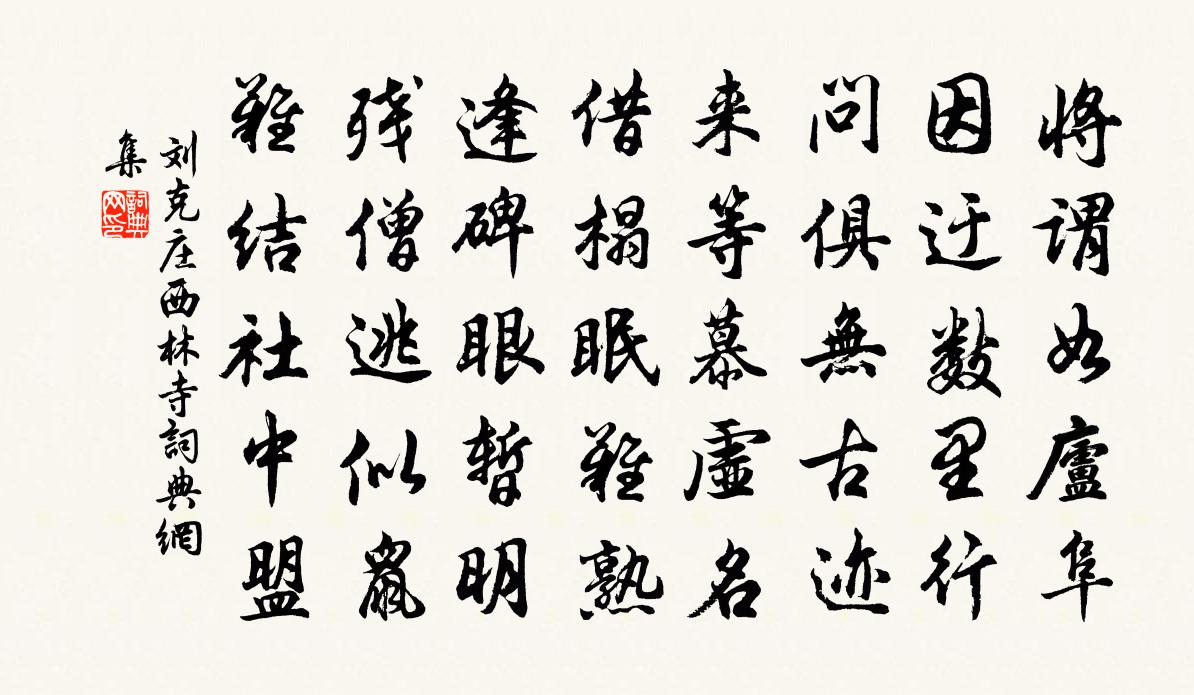 将谓如廬阜
因迂数里行
問俱無古迹
来等慕虚名
借榻眠難熟
逢碑眼暫明
残僧逃似鼠
難结社中盟
刘克庄西林寺詞典網
集
詞典
网印